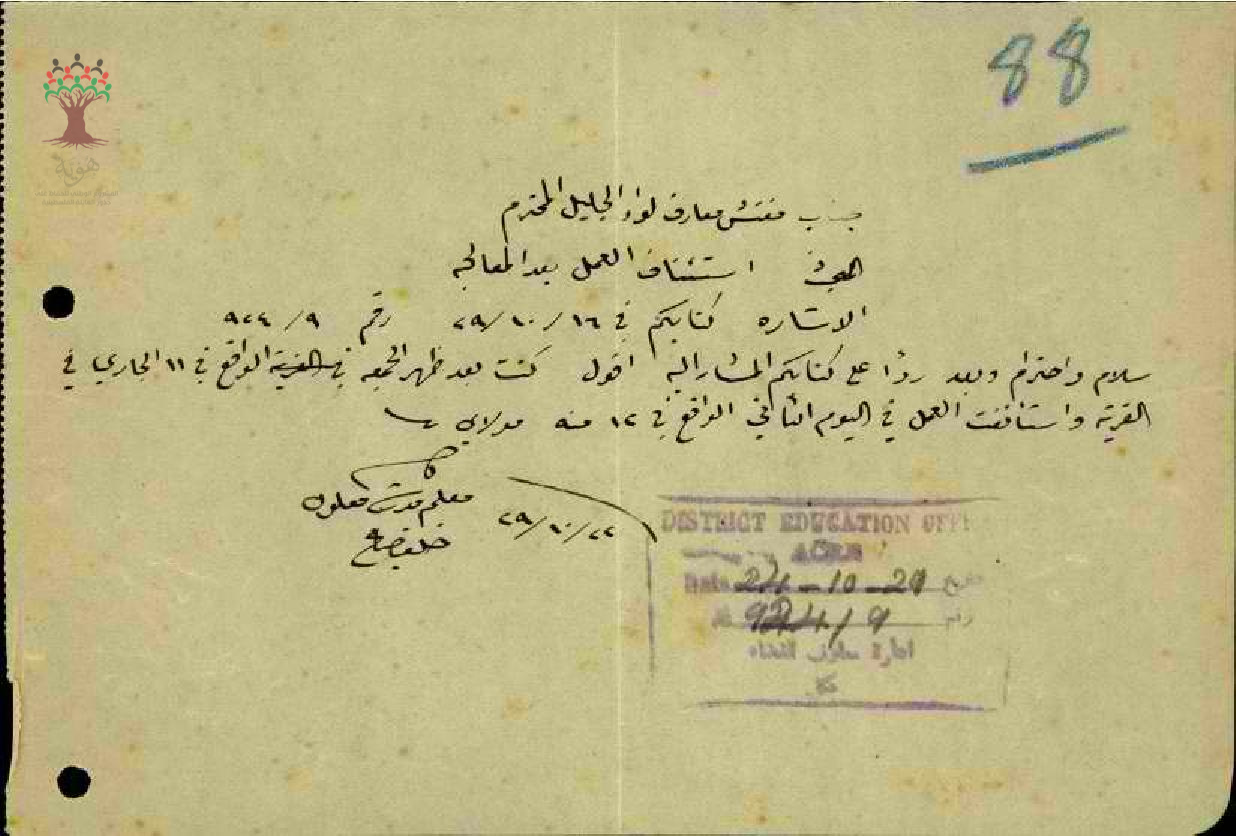 88
هوية
جناب مفتش معارف لواء الجليل المحترم
المبحث استئناف العمل بعد المعالجه
الاشاره كتابكم في ١٦/١٠/٢٩ رقم ٩/٩٢٤
سلام واحترام وبعد ردًا على كتابكم المشار اليه اقول كنت بعد ظهر الجمعه في القرية الواقع في ١١ الجاري في
القرية واستأنفت العمل في اليوم الثاني الواقع في ١٢ منه مولاي
معلم مدرسة معلول
٢٢/١٠/٢٩
DISTRICT EDUCATION OFFI
ACRE
Date 24-10-29 تاريخ
№ 924/9 رقم
ادارة معارف القضاء
عكا